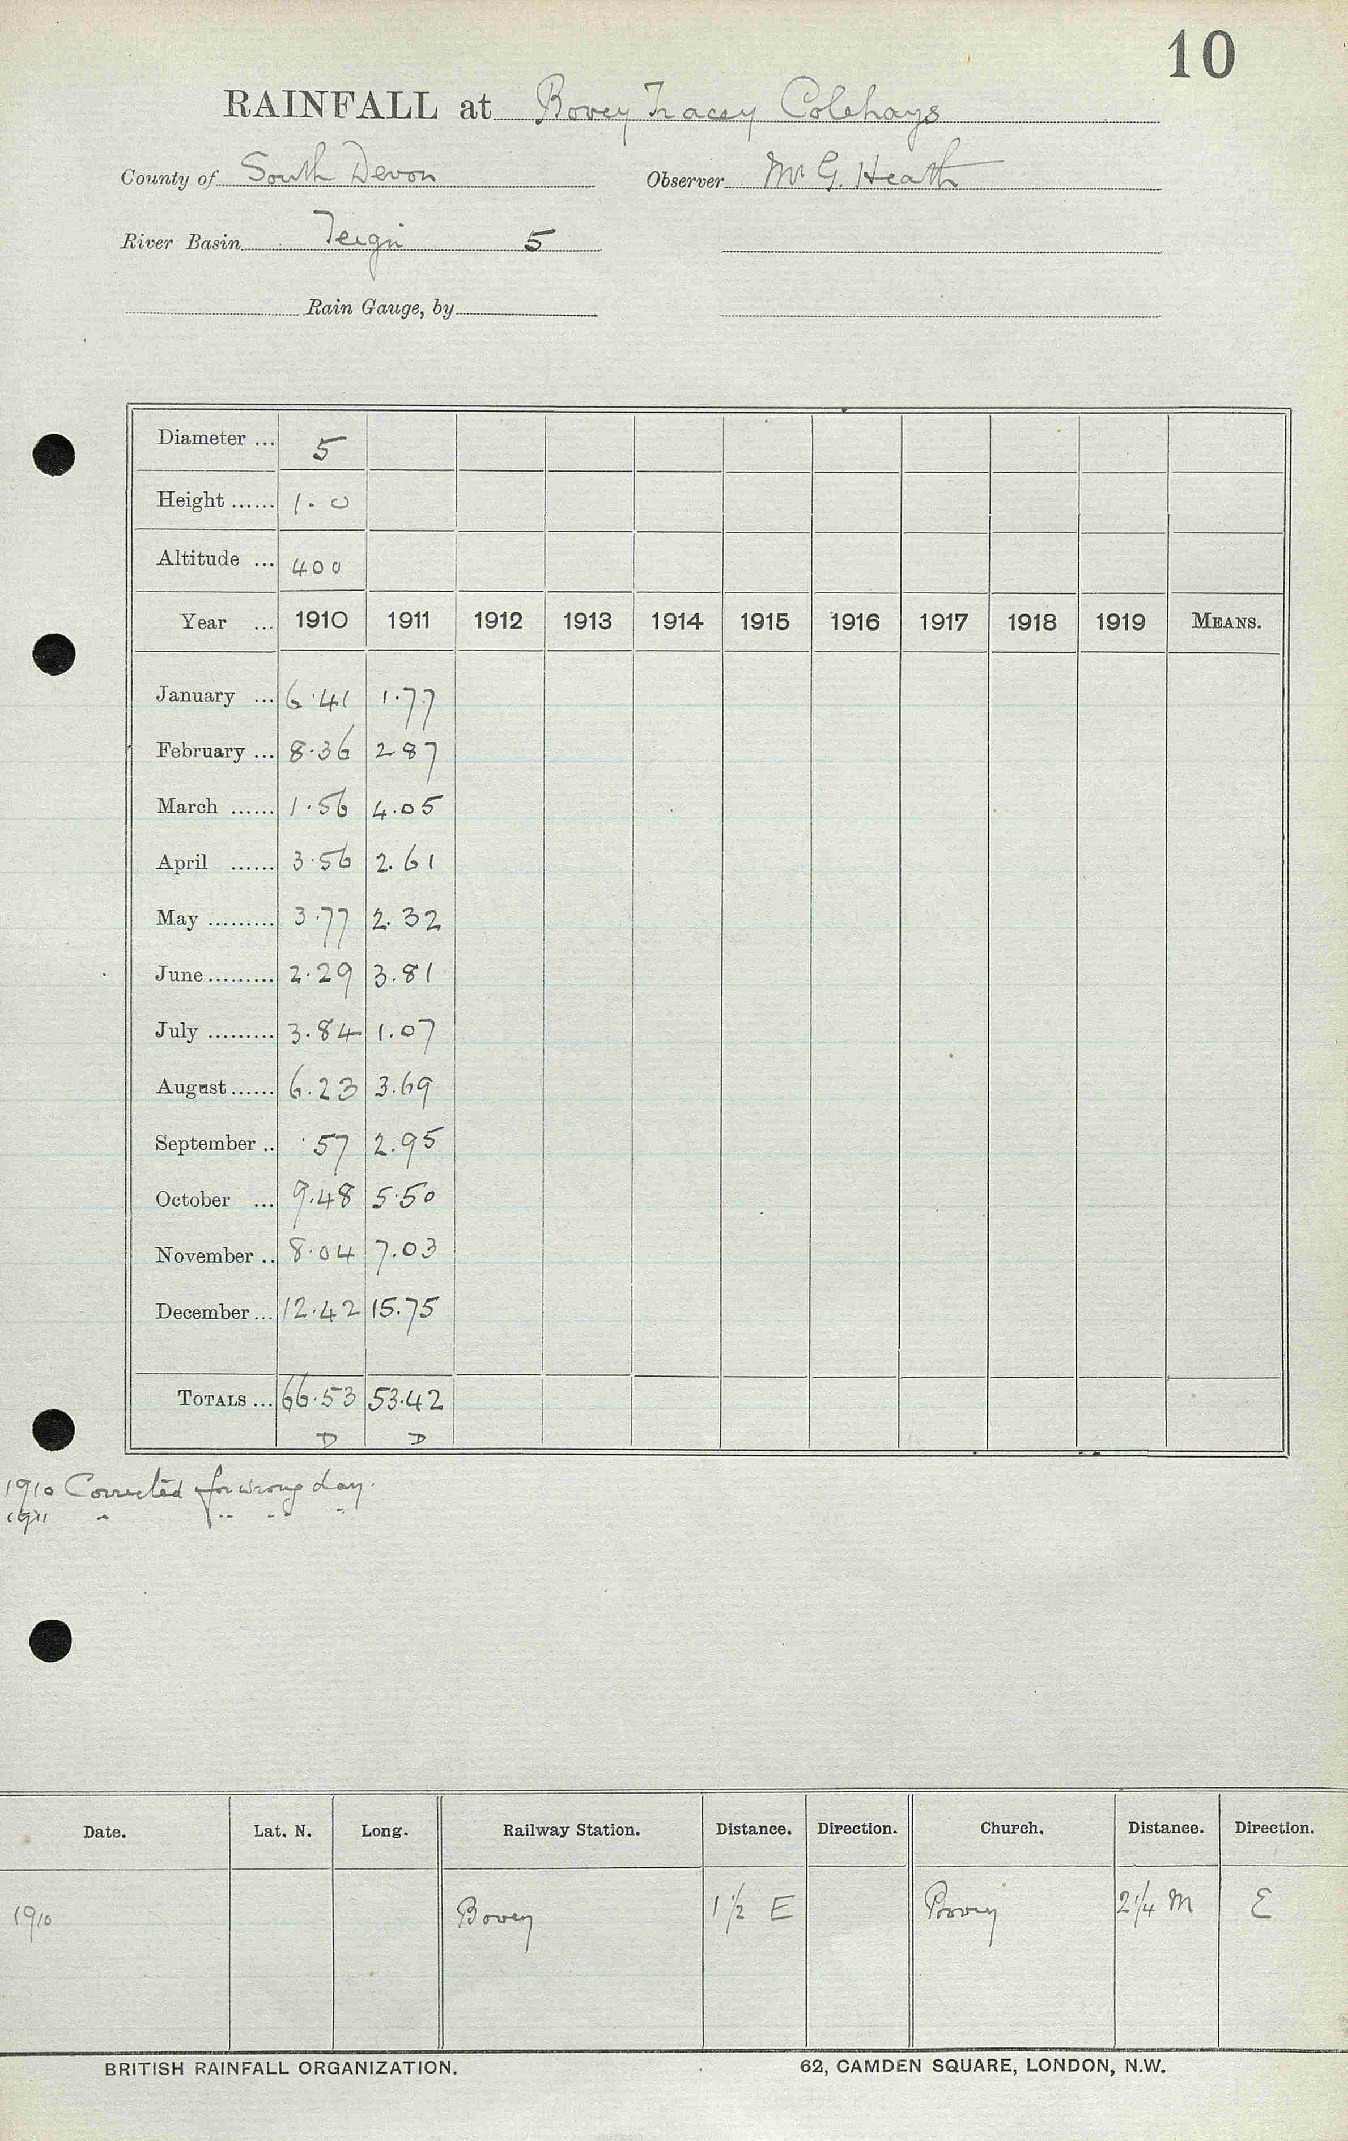 10
RAINFALL at Bovey Tracey Colehays
County of South Devon Observer Mr G. Heath
River Basin Teign 5
Rain Gauge, by
Diameter ... 5
Height ...... 1.0
Altitude ... 400
Year ... 1910 1911 1912 1913 1914 1915 1916 1917 1918 1919 MEANS.
January ... 6.41 1.77
February ... 8.36 2 87
March ...... 1.56 4.05
April ...... 3.56 2.61
May ......... 3.77 2.32
June ......... 2.29 3.81
July ......... 3.84 1.07
August ...... 6.23 3.69
September .. .57 2.95
October ... 9.48 5.50
November .. 8.04 7.03
December ... 12.42 15.75
TOTALS ... 66.53 53.42
D D
1910 Corrected for wrong day.
1911 " " " "
Date. Lat. N. Long. Railway Station. Distance. Direction. Church. Distance. Direction.
1910 Bovey 1 1/2 E Bovey 2 1/4 M E
BRITISH RAINFALL ORGANIZATION. 62, CAMDEN SQUARE, LONDON, N.W.